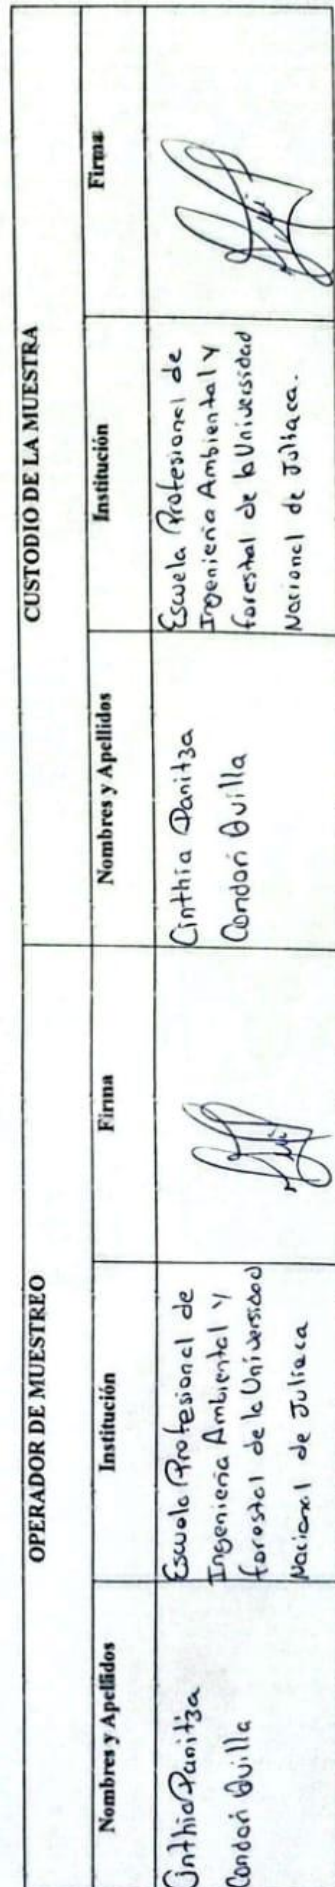 OPERADOR DE MUESTREO
CUSTODIO DE LA MUESTRA
Nombres y Apellidos
Institución
Firma
Nombres y Apellidos
Institución
Firma
Cinthia Danitza
Condori Quilla
Escuela Profesional de
Ingenieria Ambiental y
forestal de la Universidad
Nacional de Juliaca
Cinthia Danitza
Condori Quilla
Escuela Profesional de
Ingenieria Ambiental y
forestal de la Universidad
Nacional de Juliaca.